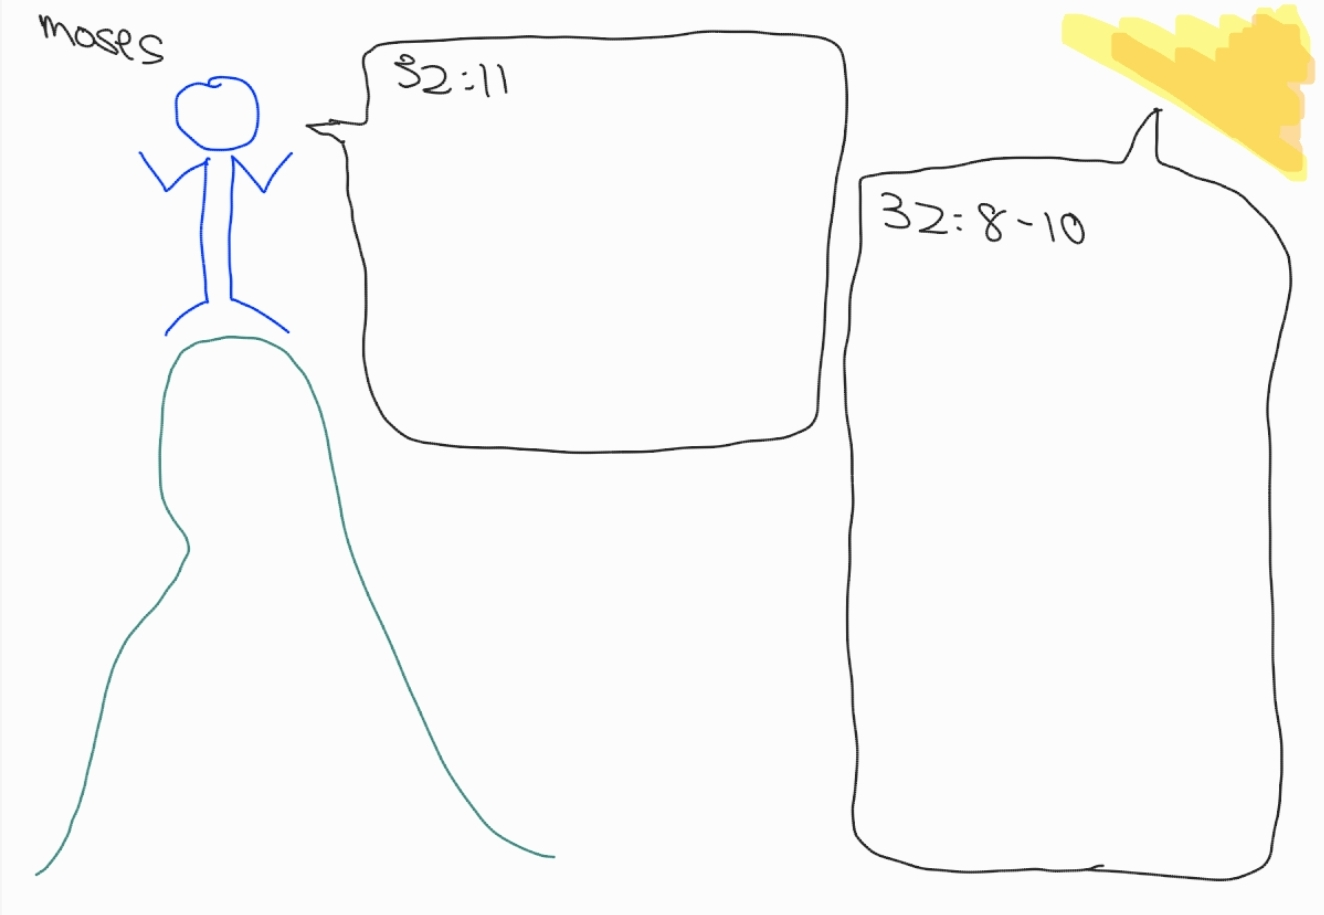 moses
32:11
32:8-10